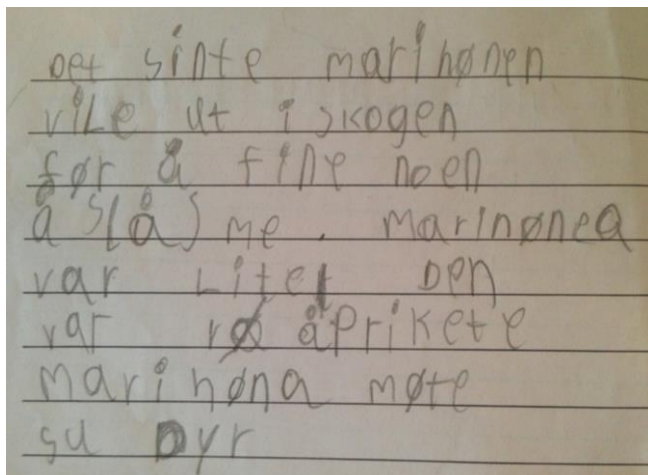 Det sinte marihønen
viLe ut i skogen
før å fine noen
å Slås me. marinønea
var Litet Den
var rø åprikete
marihøna møte
su Dyr